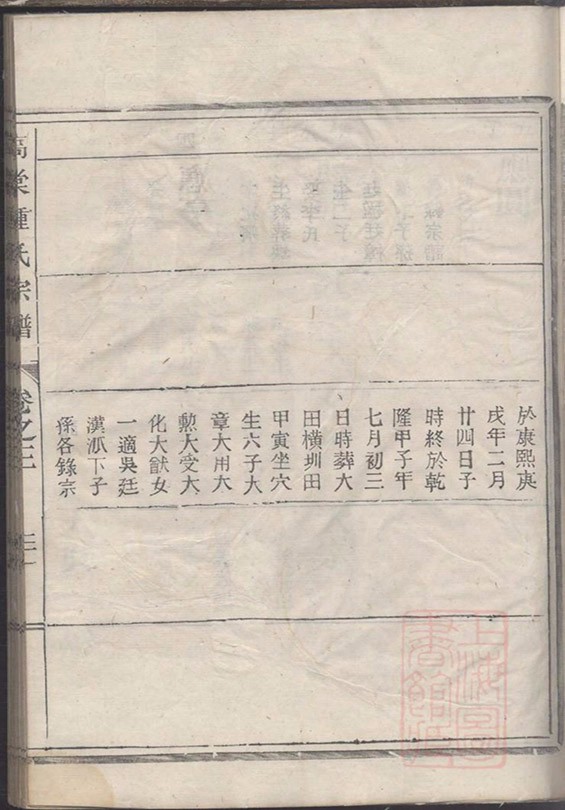 於康熙庚
戌年二月
廿四日子
時終於乾
隆甲子年
七月初三
日時葬大
田橫圳田
甲寅坐穴
生六子大
章大用大
勲大受大
化大猷女
一適吳廷
漢派下子
孫各錄宗
高棠鍾氏宗譜
卷之三
上海圖書館藏